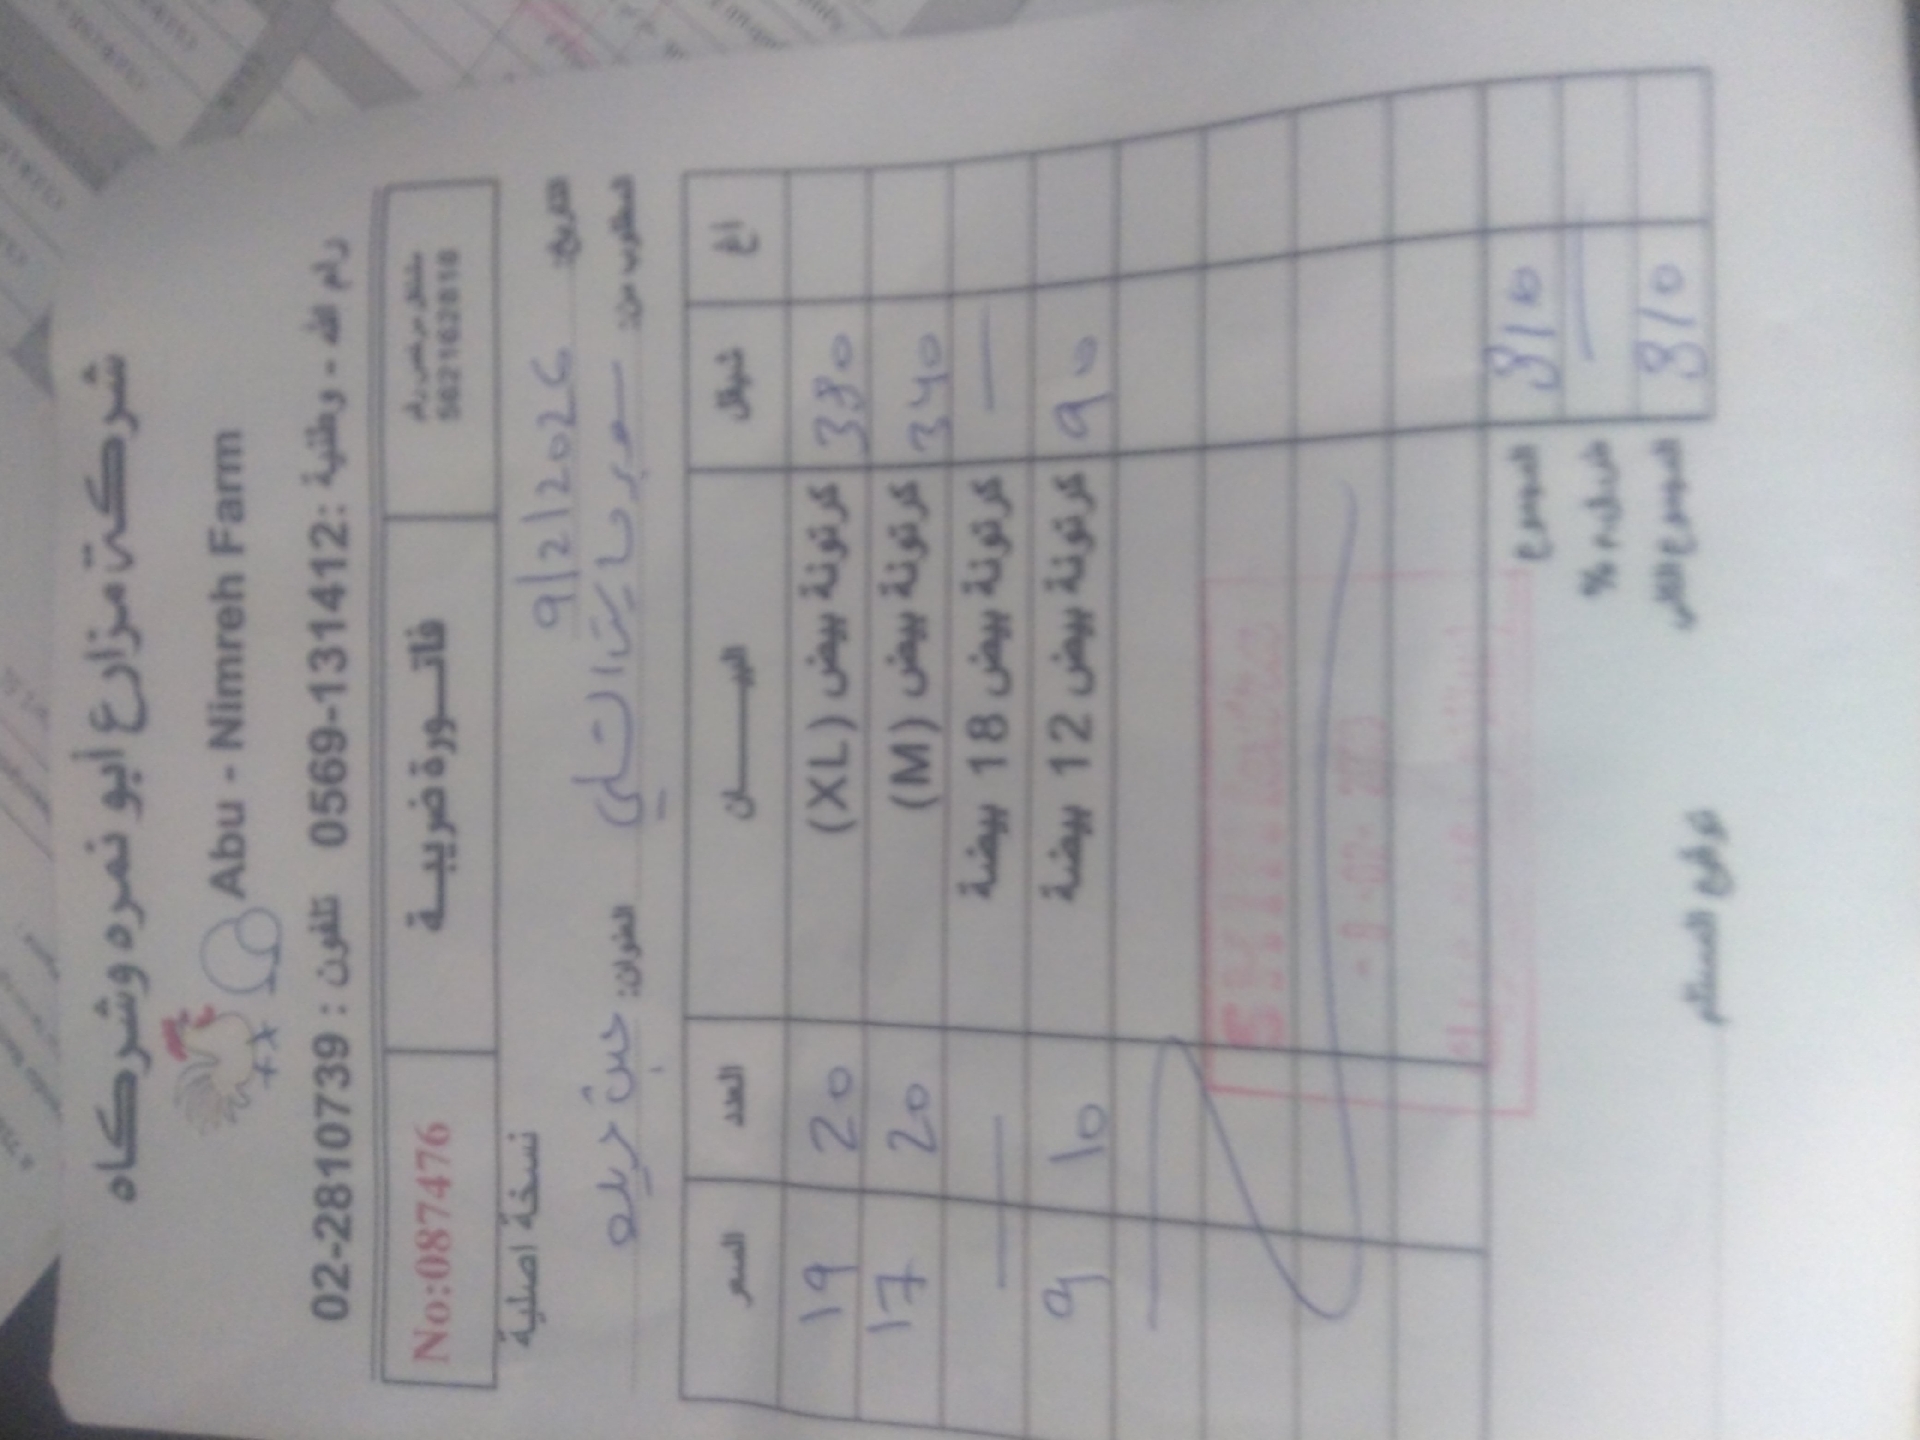 شركة مزارع أبو نمره وشركاه
Abu - Nimreh Farm
رام الله - وطنية : 0569-131412 تلفون : 02-2810739
مشتغل مرخص رقم
562162818
فاتورة ضريبية
No:087476
التاريخ: 9/2/2026
نسخة اصلية
المطلوب من: سوبر ماركت العنوان:
السعر العدد البيـــان شيقل اغ
19 20 كرتونة بيض (XL) 380
17 20 كرتونة بيض (M) 340
— — كرتونة بيض 18 بيضة —
9 10 كرتونة بيض 12 بيضة 90
المجموع 810
ض.ق.م % —
المجموع الكلي 810
توقيع المستلم